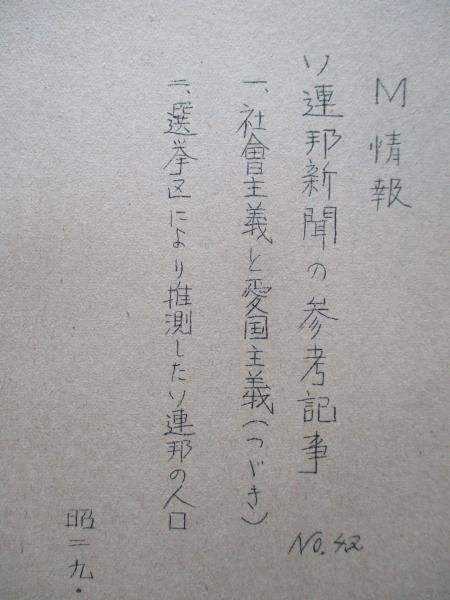 M情報
ソ連邦新聞の参考記事
NO. 42
一、社會主義と愛国主義(つゞき)
二、選挙区により推測したソ連邦の人口
昭二九・